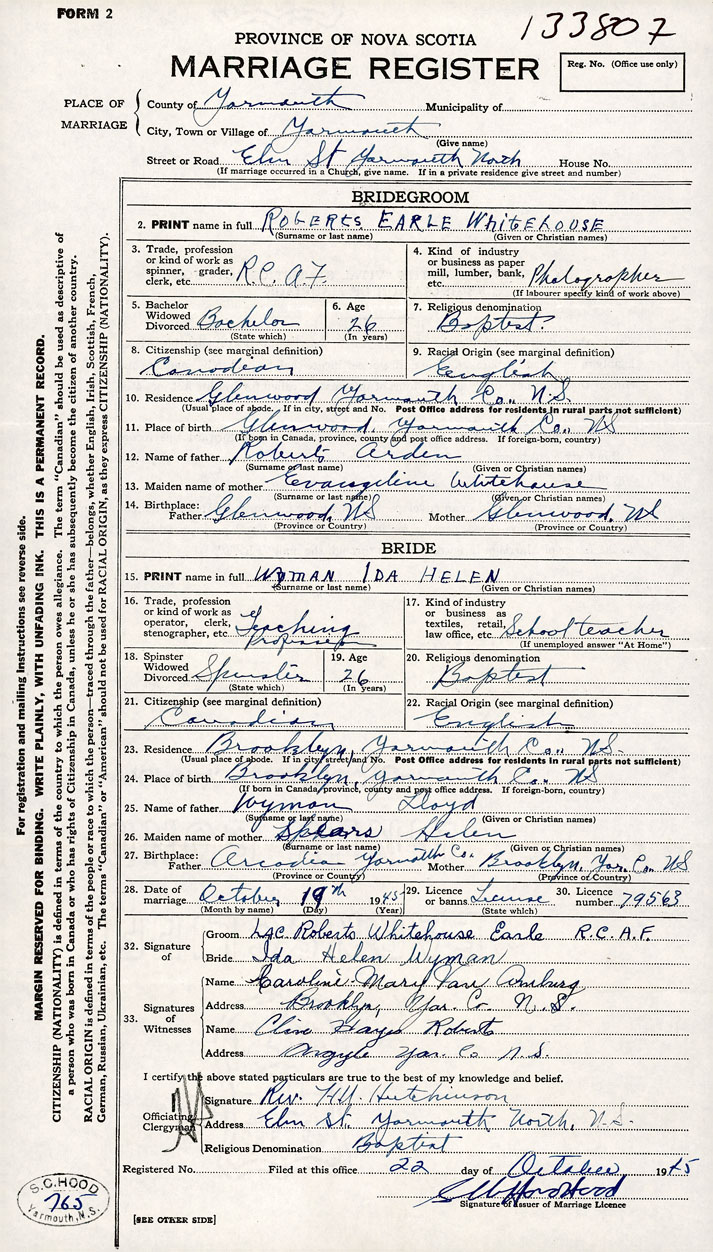 FORM 2
133807
PROVINCE OF NOVA SCOTIA
MARRIAGE REGISTER
Reg. No. (Office use only)
PLACE OF MARRIAGE
County of Yarmouth Municipality of
City, Town or Village of Yarmouth
(Give name)
Street or Road Elm St Yarmouth North House No.
(If marriage occurred in a Church, give name. If in a private residence give street and number)
BRIDEGROOM
2. PRINT name in full ROBERTS EARLE WHITEHOUSE
(Surname or last name) (Given or Christian names)
3. Trade, profession or kind of work as spinner, grader, clerk, etc. R.C.A.F.
4. Kind of industry or business as paper mill, lumber, bank, etc. Photographer
(If labourer specify kind of work above)
5. Bachelor Widowed Divorced Bachelor
(State which)
6. Age 26
(In years)
7. Religious denomination Baptist.
8. Citizenship (see marginal definition) Canadian
9. Racial Origin (see marginal definition) English
10. Residence Glenwood Yarmouth Co., N.S.
(Usual place of abode. If in city, street and No. Post Office address for residents in rural parts not sufficient)
11. Place of birth Glenwood, Yarmouth Co., NS
(If born in Canada, province, county and post office address. If foreign-born, country)
12. Name of father Roberts Arden
(Surname or last name) (Given or Christian names)
13. Maiden name of mother Evangeline Whitehouse
(Surname or last name) (Given or Christian names)
14. Birthplace: Father Glenwood, NS Mother Glenwood, NS
(Province or Country) (Province or Country)
BRIDE
15. PRINT name in full WYMAN IDA HELEN
(Surname or last name) (Given or Christian names)
16. Trade, profession or kind of work as operator, clerk, stenographer, etc. Teaching
17. Kind of industry or business as textiles, retail, law office, etc. School teacher
(If unemployed answer "At Home")
18. Spinster Widowed Divorced Spinster
(State which)
19. Age 26
(In years)
20. Religious denomination Baptist
21. Citizenship (see marginal definition) Canadian
22. Racial Origin (see marginal definition) English
23. Residence Brooklyn, Yarmouth Co., NS.
(Usual place of abode. If in city, street and No. Post Office address for residents in rural parts not sufficient)
24. Place of birth Brooklyn, Yarmouth Co. NS
(If born in Canada, province, county and post office address. If foreign-born, country)
25. Name of father Wyman Lloyd
(Surname or last name) (Given or Christian names)
26. Maiden name of mother Spears Helen
(Surname or last name) (Given or Christian names)
27. Birthplace: Father Arcadia Yarmouth Co. Mother Brooklyn, Yar. Co. NS
(Province or Country) (Province or Country)
28. Date of marriage October 19th 1945
(Month by name) (Day) (Year)
29. Licence or banns License
(State which)
30. Licence number 79563
32. Signature of
Groom LAC Roberts Whitehouse Earle R.C.A.F.
Bride Ida Helen Wyman
33. Signatures of Witnesses
Name Caroline Mary Van Amburg
Address Brooklyn, Yar. Co. N.S.
Name Clive Hayes Roberts
Address Argyle Yar. Co N.S.
I certify the above stated particulars are true to the best of my knowledge and belief.
Officiating Clergyman
Signature Rev. Hutchinson
Address Elm St. Yarmouth North, N.S.
Religious Denomination Baptist
Registered No. Filed at this office 22 day of October 1945
Signature of Issuer of Marriage Licence
[SEE OTHER SIDE]
S.C. HOOD
765
Yarmouth, N.S.
For registration and mailing instructions see reverse side.
MARGIN RESERVED FOR BINDING. WRITE PLAINLY, WITH UNFADING INK. THIS IS A PERMANENT RECORD.
CITIZENSHIP (NATIONALITY) is defined in terms of the country to which the person owes allegiance. The term "Canadian" should be used as descriptive of
a person who was born in Canada or who has rights of Citizenship in Canada, unless he or she has subsequently become the citizen of another country.
RACIAL ORIGIN is defined in terms of the people or race to which the person—traced through the father—belongs, whether English, Irish, Scottish, French,
German, Russian, Ukrainian, etc. The terms "Canadian" or "American" should not be used for RACIAL ORIGIN, as they express CITIZENSHIP (NATIONALITY).